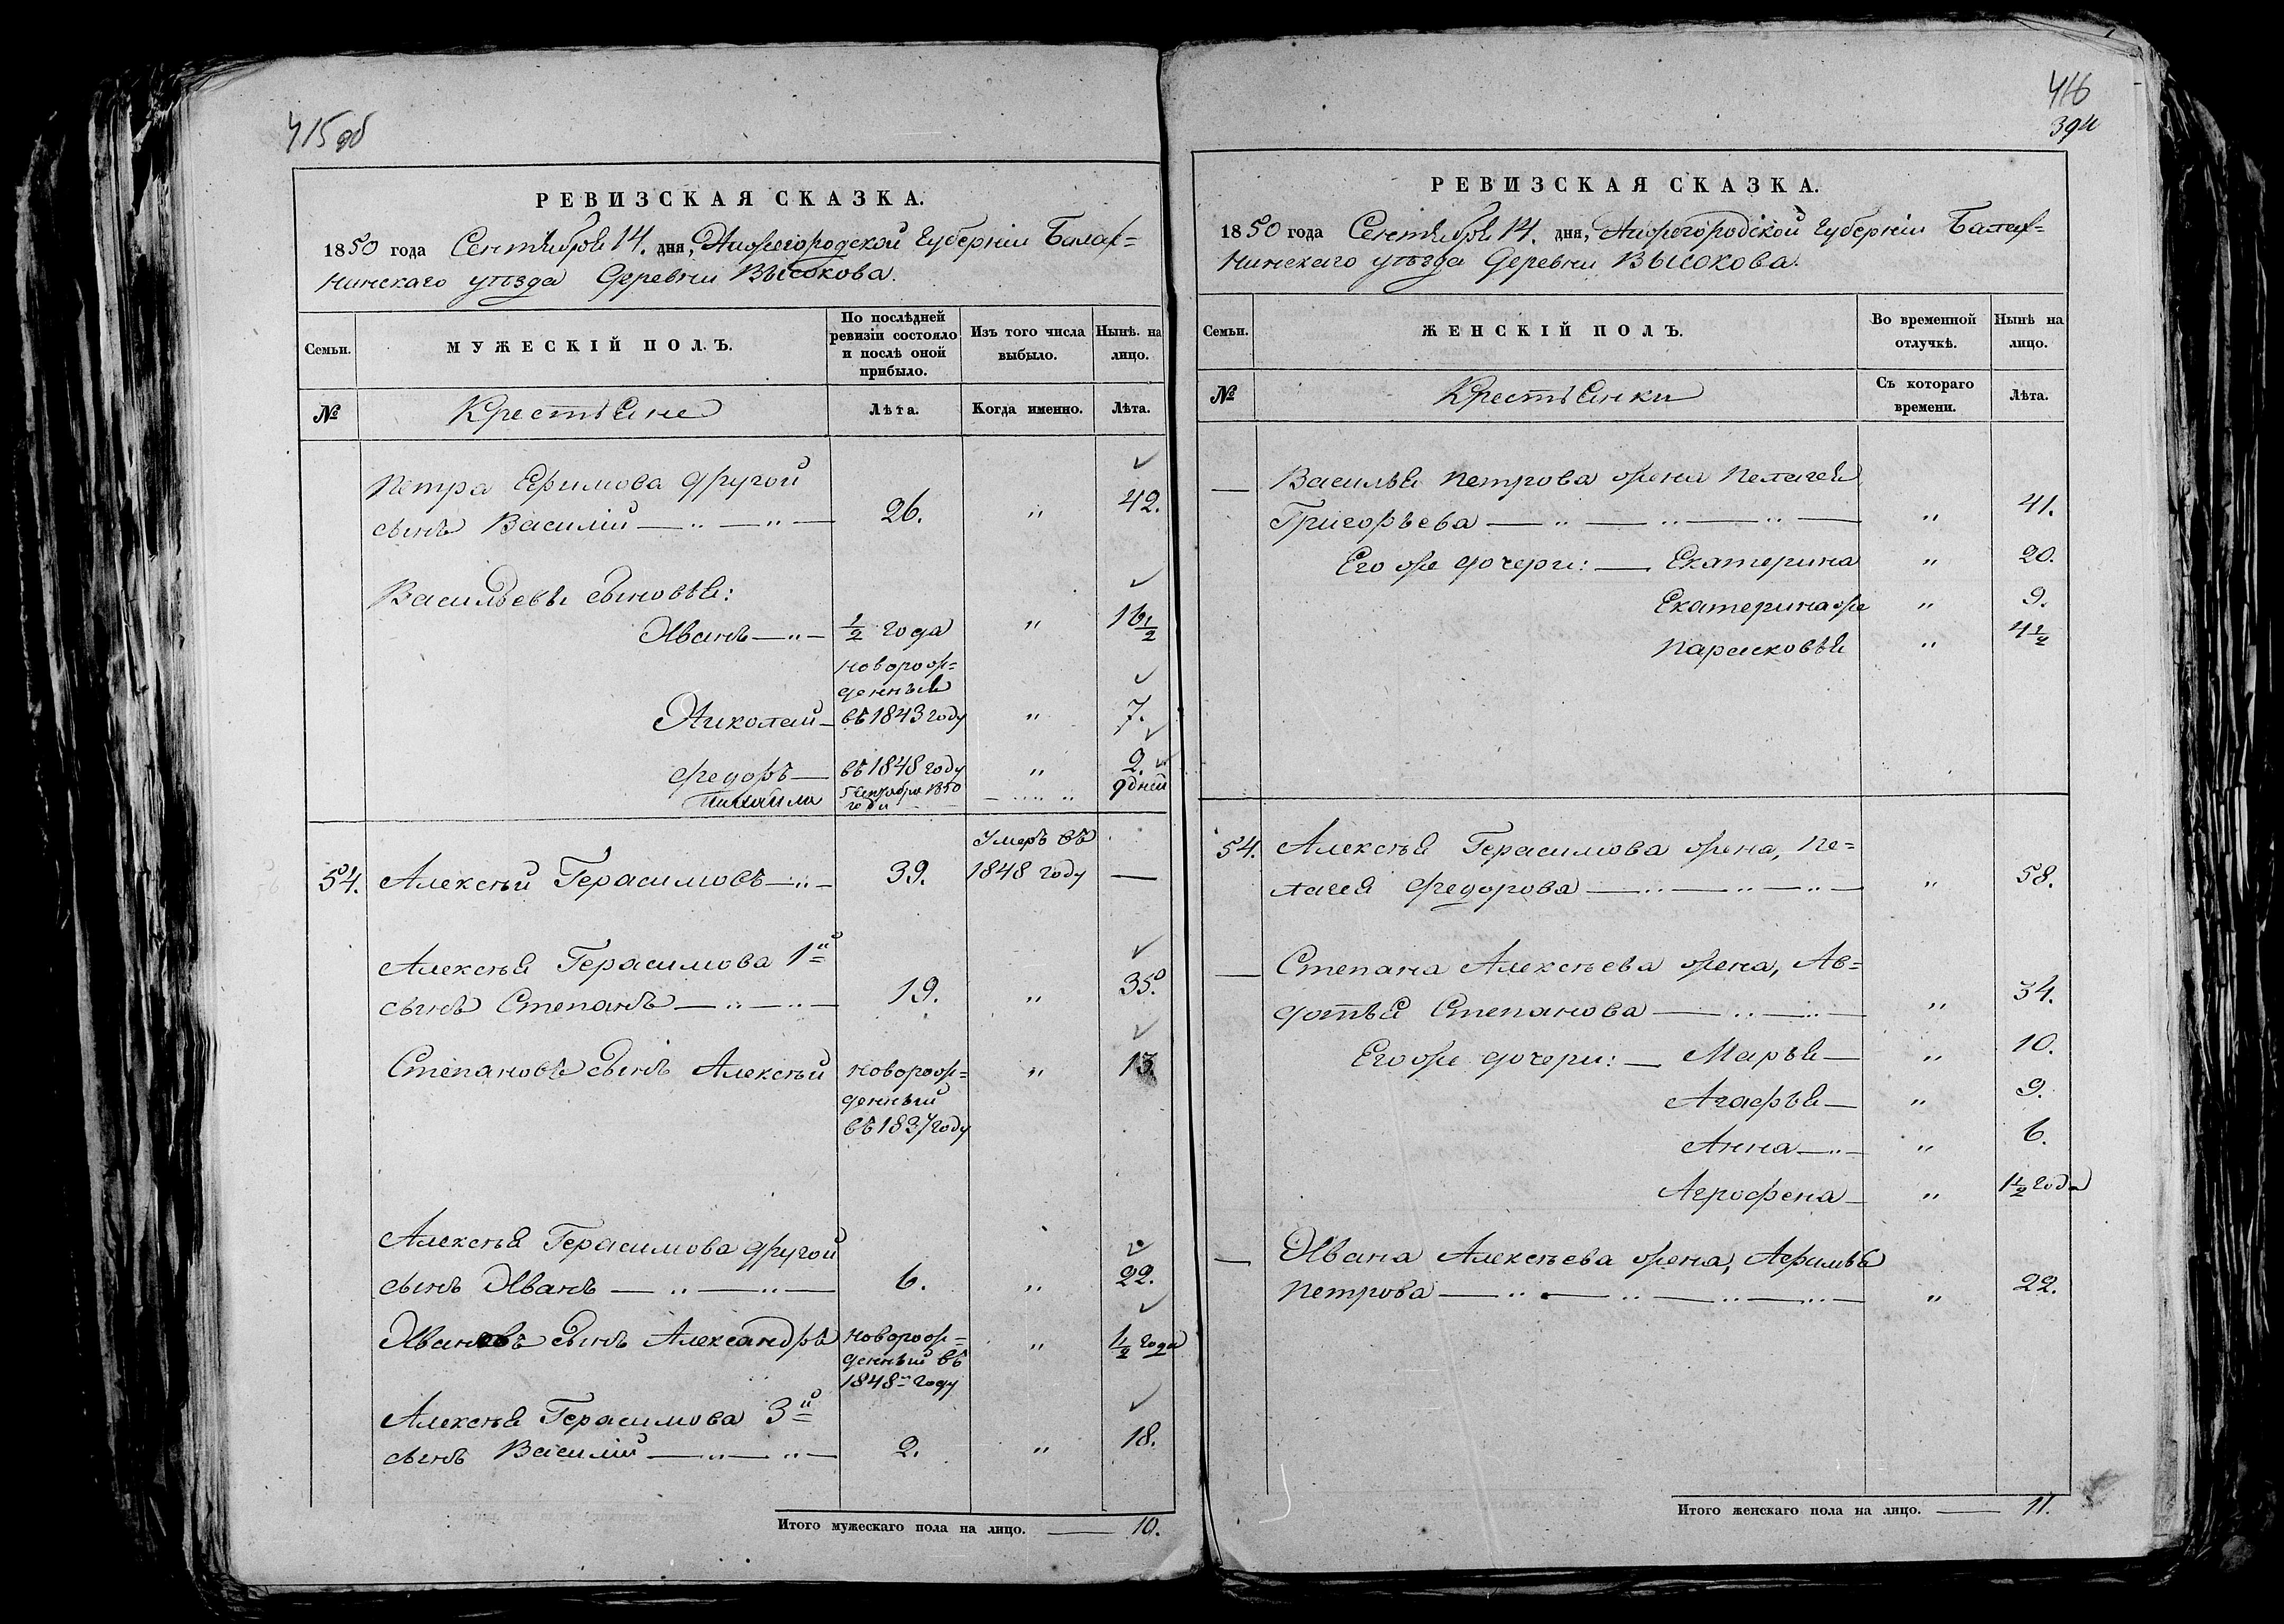 415 об
РЕВИЗСКАЯ СКАЗКА.
1850 года Сентября 14. дня, Нижегородской Губерніи Балах=
нинскаго уѣзда Деревни Высокова.
Семьи.
МУЖЕСКІЙ ПОЛЪ.
По послѣдней ревизіи состояло и послѣ оной прибыло.
Изъ того числа выбыло.
Нынѣ на лицо.
№
Крестьяне
Лѣта.
Когда именно.
Лѣта.
Петра Ефимова другой
сынъ Василій — „ — „ — 26. „ 42.
Васильевы сыновья:
Иванъ — „ — ½ года „ 16½
новорож=
денные
Николай — въ 1843 году „ 7.
Федоръ — въ 1848 году „ 2.
Михайла 5 Сентября 1850 — „ „ 9 дней
года
Умеръ въ
54. Алексѣй Герасимовъ — „ — 39. 1848 году —
Алексѣя Герасимова 1й
сынъ Степанъ — „ — „ — 19. „ 35.
Степановъ сынъ Алексѣй новорож= „ 13.
денный
въ 1837 году
Алексѣя Герасимова другой
сынъ Иванъ — „ — „ — 6. „ 22.
Ивановъ сынъ Александръ новорож= „ 1½ года
денный въ
1848м году
Алексѣя Герасимова 3й
сынъ Василій — „ — „ — 2. „ 18.
Итого мужескаго пола на лицо. — 10.
416
394
РЕВИЗСКАЯ СКАЗКА.
1850 года Сентября 14. дня, Нижегородской Губерніи Балах=
нинскаго уѣзда Деревни Высокова.
Семьи.
ЖЕНСКІЙ ПОЛЪ.
Во временной отлучкѣ.
Нынѣ на лицо.
№
Крестьянки
Съ котораго времени.
Лѣта.
— Василья Петрова жена Пелагея
Григорьева — „ — „ — „ — „ 41.
Его же дочери: — Екатерина „ 20.
Екатерина же „ 9.
Парасковья „ 4½
54. Алексѣя Герасимова жена, Пе=
лагея Федорова — „ — „ — „ — „ 58.
— Степана Алексѣева жена, Ав=
дотья Степанова — „ — „ — „ 34.
Его же дочери: — Марья — „ 10.
Агафья — „ 9.
Анна — „ — „ 6.
Аграфена — „ 1½ года
— Ивана Алексѣева жена, Афимья
Петрова — „ — „ — „ — „ — „ 22.
Итого женскаго пола на лицо. — 11.